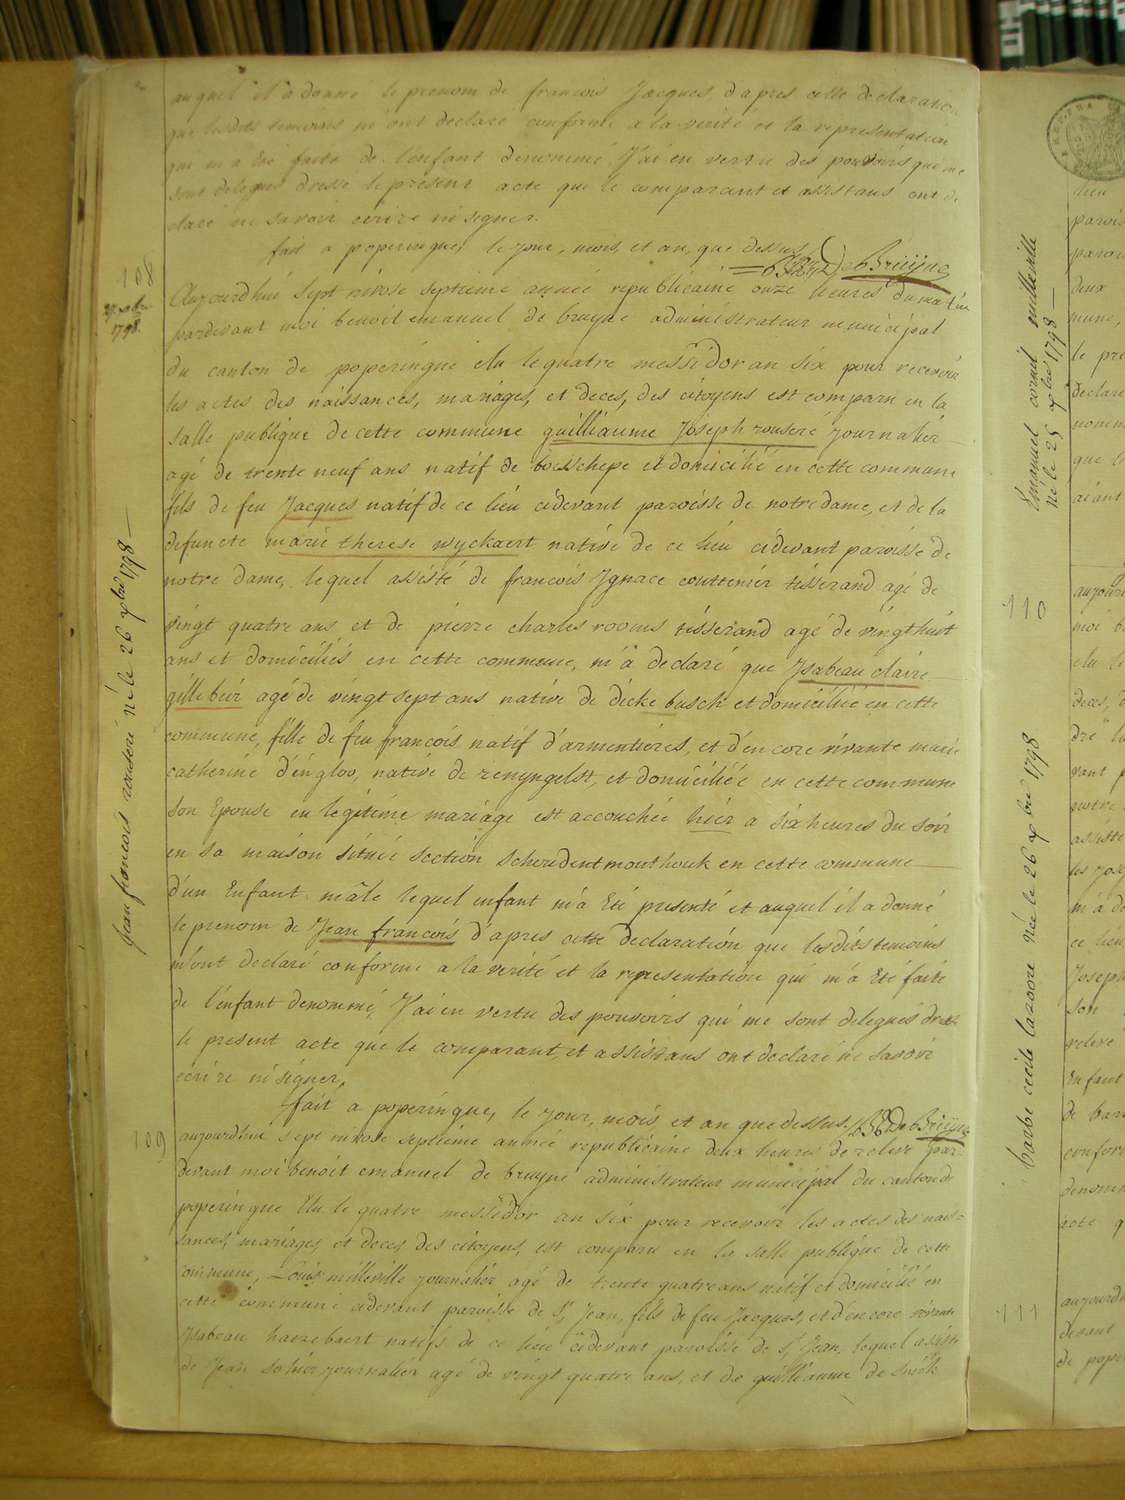 auquel il a donné le prenom de francois Jacques d'apres cette declaration
que lesdits temoins m'ont declaré conforme a la verité et la representation
qui m'a Eté faite de l'enfant denommé J'ai en vertu des pouvoirs qui me
sont delegués dressé le present acte que le comparant et assistans ont de
claré ne savoir ecrire ni signer.
fait a poperingue, le jour, mois, et an, que dessus
DeBruÿne
108
27 xbre
1798.
Aujourdhui sept nivose septieme année republicaine onze heures du matin
pardevant moi benoit emanuel de bruyne administrateur municipal
du canton de poperingue elu le quatre messidor an six pour recevoir
les actes des naissances, mariages, et deces, des citoyens est comparu en la
salle publique de cette commune guilliaume Joseph rouseré journalier
agé de trente neuf ans natif de boesschepe et domicilié en cette commune
fils de feu Jacques natif de ce lieu cidevant paroisse de notre dame, et de la
defuncte marie therese wyckaert native de ce lieu cidevant paroisse de
notre dame, lequel assisté de francois Ignace couttenier tisserand agé de
vingt quatre ans et de pierre charles rooms tisserand agé de vingt huit
ans et domiciliés en cette commune, m'a declaré que Ysabeau claire
gillebeir agé de vingt sept ans native de dickebusch et domiciliée en cette
commune, fille de feu francois natif d'armentieres, et d'encore vivante marie
catherine d'englos, native de renyngelst, et domiciliée en cette commune
son Epouse en legitime mariage est accouchée hier a six heures du soir
en sa maison située section schreudentmouthouk en cette commune
d'un Enfant mâle lequel enfant m'a Eté presenté et auquel il a donné
le prenom de Jean francois d'apres cette declaration que lesdits temoins
m'ont declaré conforme a la verité et la representation qui m'a Eté faite
de l'enfant denommé, J'ai en vertu des pouvoirs qui me sont delegués dressé
le present acte que le comparant et assistans ont declaré ne savoir
ecrire ni signer,
fait a poperingue, le jour, mois, et an que dessus. DeBruÿne
Jean francois rouseré né le 26 xbre 1798
109
aujourdhui sept nivose septieme année republicaine deux heures de relevé par
devant moi benoit emanuel de bruyne administrateur municipal du canton de
poperingue Elu le quatre messidor an six pour recevoir les actes des nais=
sances, mariages, et deces des citoyens, est comparu en la salle publique de cette
commune, Louis milleville journalier agé de trente quatre ans natif et domicilié en
cette commune cidevant paroisse de St Jean, fils de feu Jacques, et d'encore vivante
Ysabeau haezebaert natifs de ce lieu cidevant paroisse de St Jean, lequel assisté
de Jean sohier journalier agé de vingt quatre ans, et de guilliaume de
Emanuel cornil milleville
né le 25 xbre 1798
110
barbe cecile lazoore née le 26 xbre 1798
111
lieu
parois
paroi
deux
mune,
le pre
declaré
nomm
que le
aiant
aujourd
moi be
elu le
deces, d
vant p
notre
assisté
m'a de
ce lieu
Joseph
son
relevé
Enfant
de bar
confor
denomm
acte q
aujourdh
devant
de pope